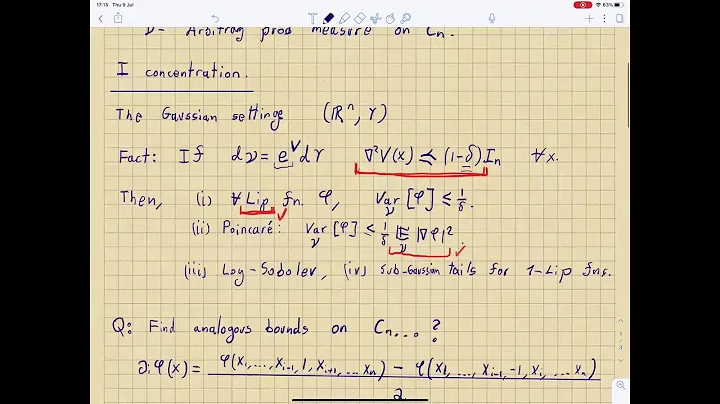 17:15 Thu 9 Jul 63%
ν - Arbitrary prob measure on Cn.
I concentration.
The Gaussian settings (ℝⁿ, γ)
Fact: If dν = e^V dγ ∇²V(x) ≼ (1-δ)Iₙ ∀x.
Then, (i) ∀ Lip fn. φ, Var_ν[φ] ≤ 1/δ.
(ii) Poincaré: Var_ν[φ] ≤ 1/δ 𝔼_ν |∇φ|².
(iii) Log-Sobolev, (iv) sub-Gaussian tails for 1-Lip fns.
Q: Find analogous bounds on Cn...?
∂ᵢφ(x) = φ(x₁,...,xᵢ₋₁,1,xᵢ₊₁,...xₙ) - φ(x₁,...,xᵢ₋₁,-1,xᵢ,...xₙ)
2